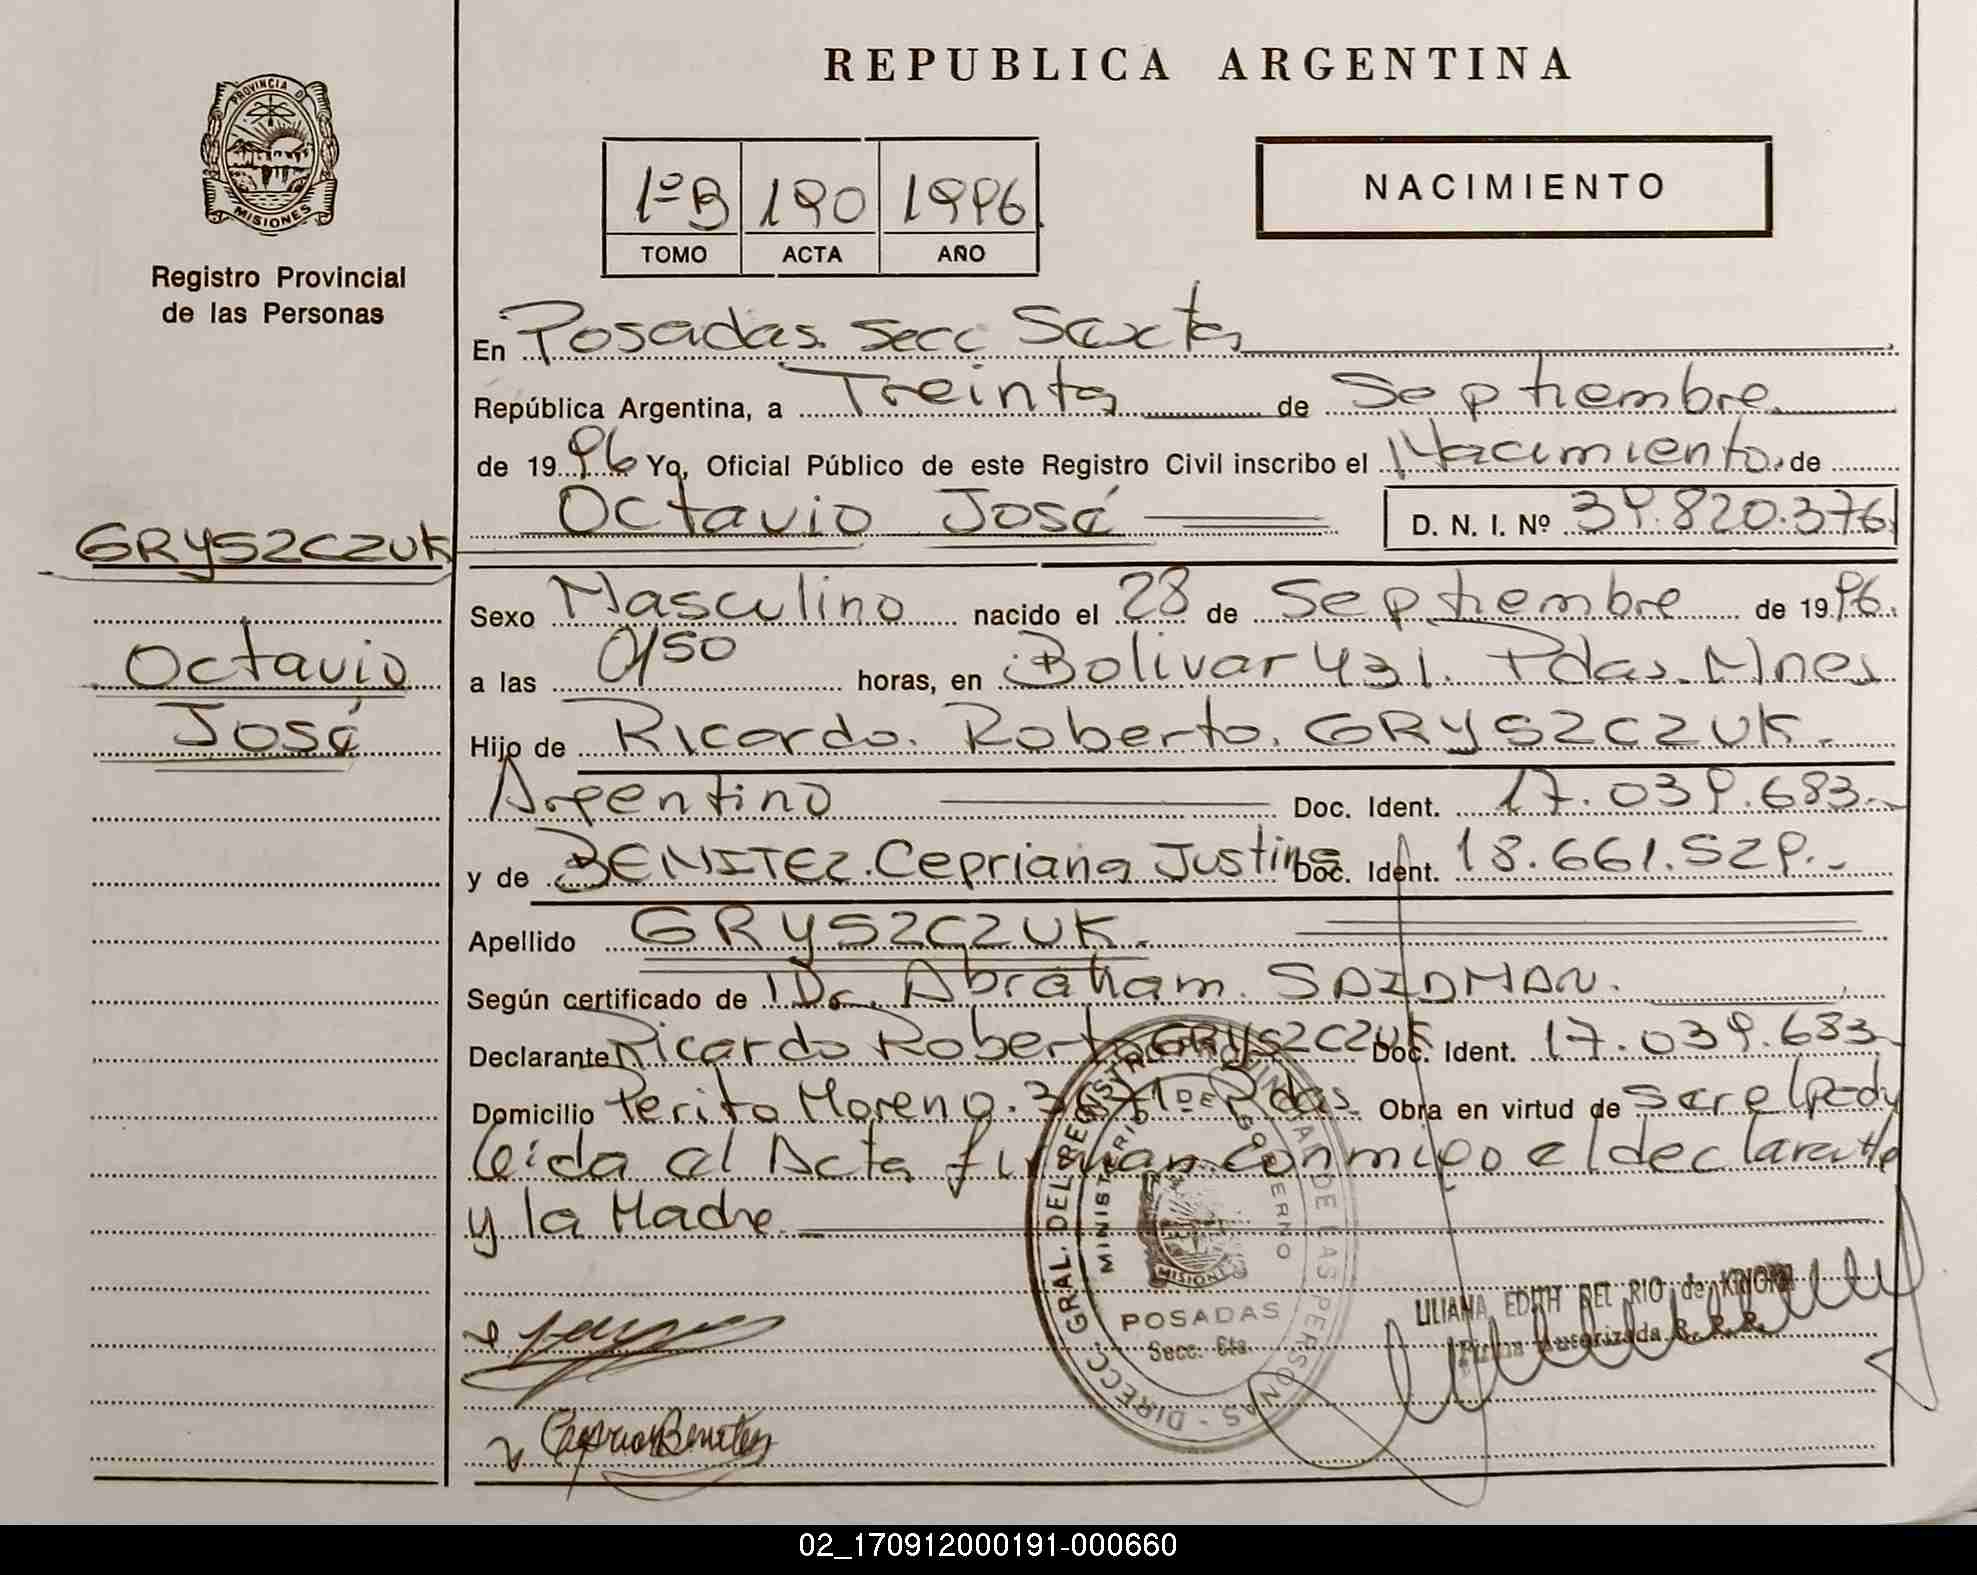 REPUBLICA ARGENTINA
PROVINCIA D
MISIONES
Registro Provincial
de las Personas
1º B 190 1996
TOMO ACTA AÑO
NACIMIENTO
En Posadas. Secc Sexta
República Argentina, a Treinta de Septiembre
de 1996 Yo, Oficial Público de este Registro Civil inscribo el Nacimiento de
Octavio José D. N. I. Nº 39.820.376
GRYSZCZUK
Octavio
José
Sexo Masculino nacido el 28 de Septiembre de 1996.
a las horas, en Bolivar 431. Pdas. Mnes
Hijo de Ricardo. Roberto. GRYSZCZUK.
Argentino Doc. Ident. 17.039.683.-
y de BENITEZ. Cepriana Justina Doc. Ident. 18.661.529.-
Apellido GRYSZCZUK.
Según certificado de Dr. Abraham. SAIDMAN.
Declarante Ricardo Roberto GRYSZCZUK Doc. Ident. 17.039.683
Domicilio Perito Moreno. Pdas Obra en virtud de ser el
leida el Acta firman conmigo el declarante
y la Madre.
DIRECC. GRAL. DEL REGISTRO PROVINCIAL DE LAS PERSONAS
MINISTERIO DE GOBIERNO
MISIONES
POSADAS
Secc. 6ta.
LILIANA EDITH DEL RIO de
Firma Autorizada R. P. P.
02_170912000191-000660